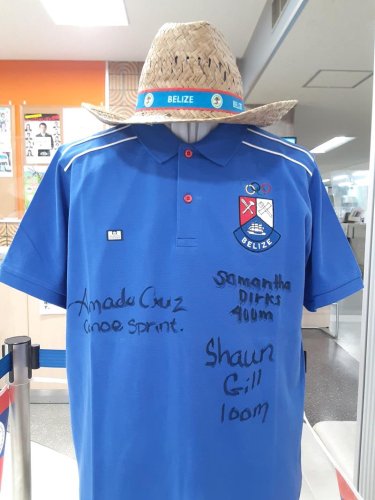 BELIZE
BELIZE
Amado Cruz
Canoe Sprint.
Samantha
Dirks
400m
Shaun
Gill
100m